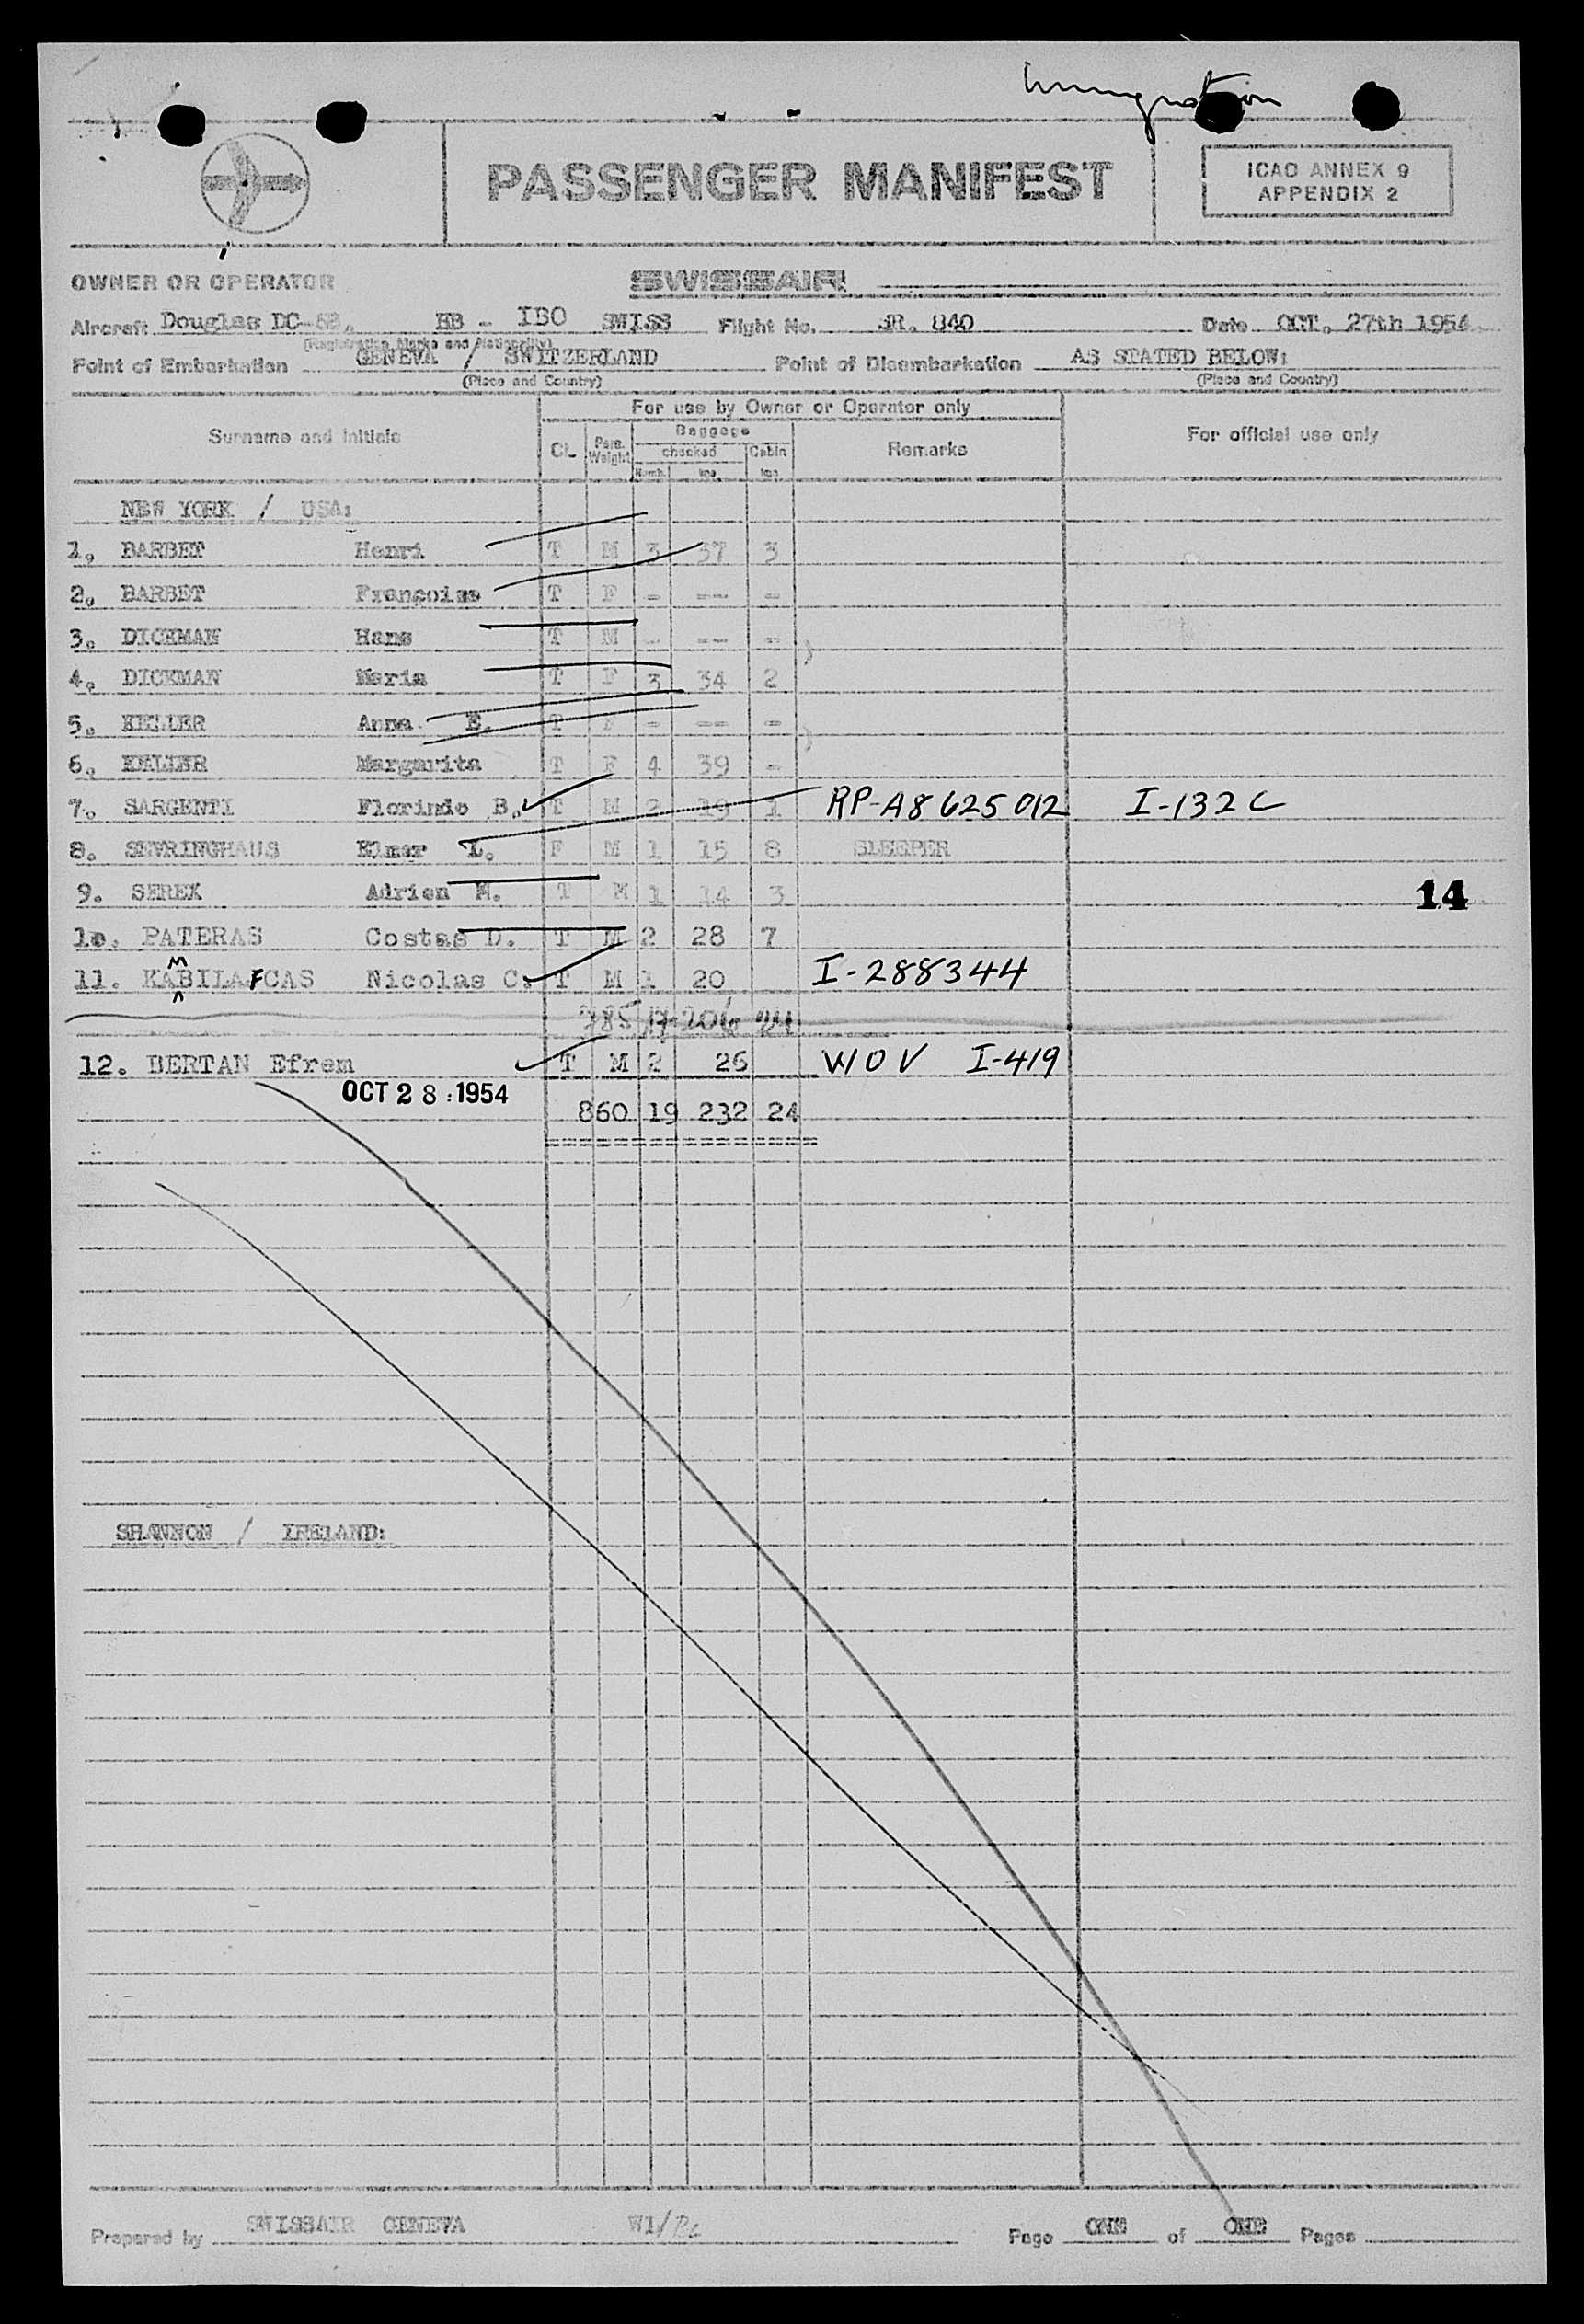 Immigration
PASSENGER MANIFEST
ICAO ANNEX 9
APPENDIX 2
OWNER OR OPERATOR SWISSAIR
Aircraft Douglas DC-6B. HB - IBO SWISS Flight No. SR. 840 Date OCT. 27th 1954
(Registration Marks and Nationality)
Point of Embarkation GENEVA / SWITZERLAND Point of Disembarkation AS STATED BELOW:
(Place and Country) (Place and Country)
For use by Owner or Operator only
Surname and initials CL. Pers. Weight Baggage Remarks For official use only
checked Cabin
Numb. kgs kgs
NEW YORK / USA:
1. BARBET Henri T M 3 37 3
2. BARBET Françoise T F - -- -
3. DICKMAN Hans T M - -- - )
4. DICKMAN Maria T F 3 34 2
5. KELLER Anna E. T F - -- - )
6. KELLER Margarita T F 4 39 -
7. SARGENTI Florindo B. T M 2 19 1 RP-A8625012 I-132C
8. SEVRINGHAUS Elmer L. F M 1 15 8 SLEEPER
9. SEREX Adrien M. T M 1 14 3
14
10. PATERAS Costas D. T M 2 28 7
M
11. KABILAFCAS Nicolas C. T M 1 20 I-288344
785 17 206 24
12. BERTAN Efrem T M 2 26 WOV I-419
OCT 28 1954
860 19 232 24
==================
SHANNON / IRELAND:
Prepared by SWISSAIR GENEVA W1/
Page ONE of ONE Pages